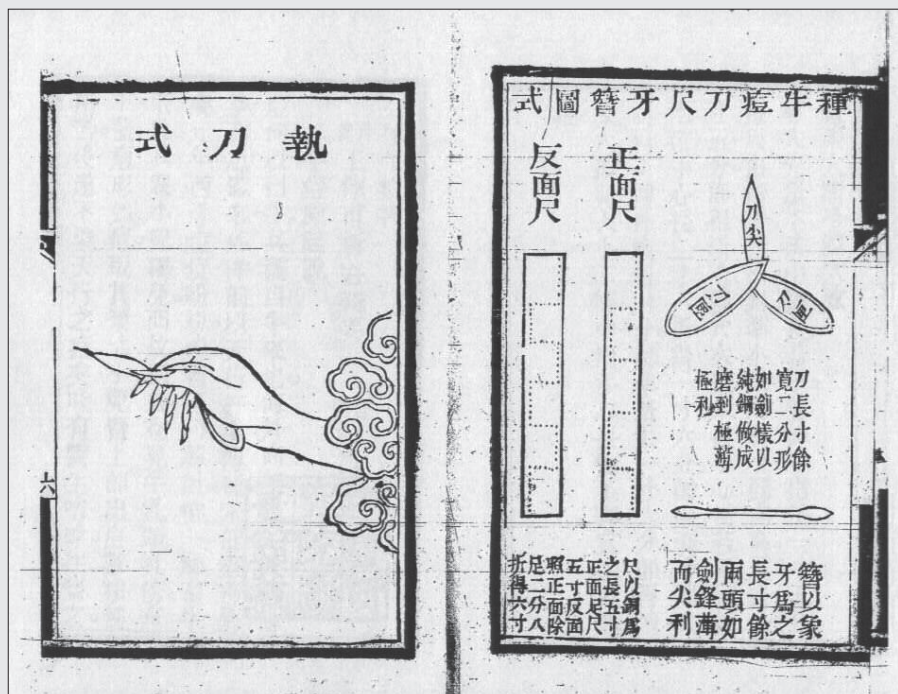 種牛痘刀尺牙簪圖式
正面尺
反面尺
刀尖
刀
刀
刀長寸餘
寬二分形
如劍儀以
純鋼做成
磨到極薄
極利
簪以象
牙爲之
長寸餘
兩頭如
劍鋒薄
而尖利
尺以銅爲
之長五寸
正面足尺
五寸反面
照正面除
足二分八
折得六寸
執刀式
六